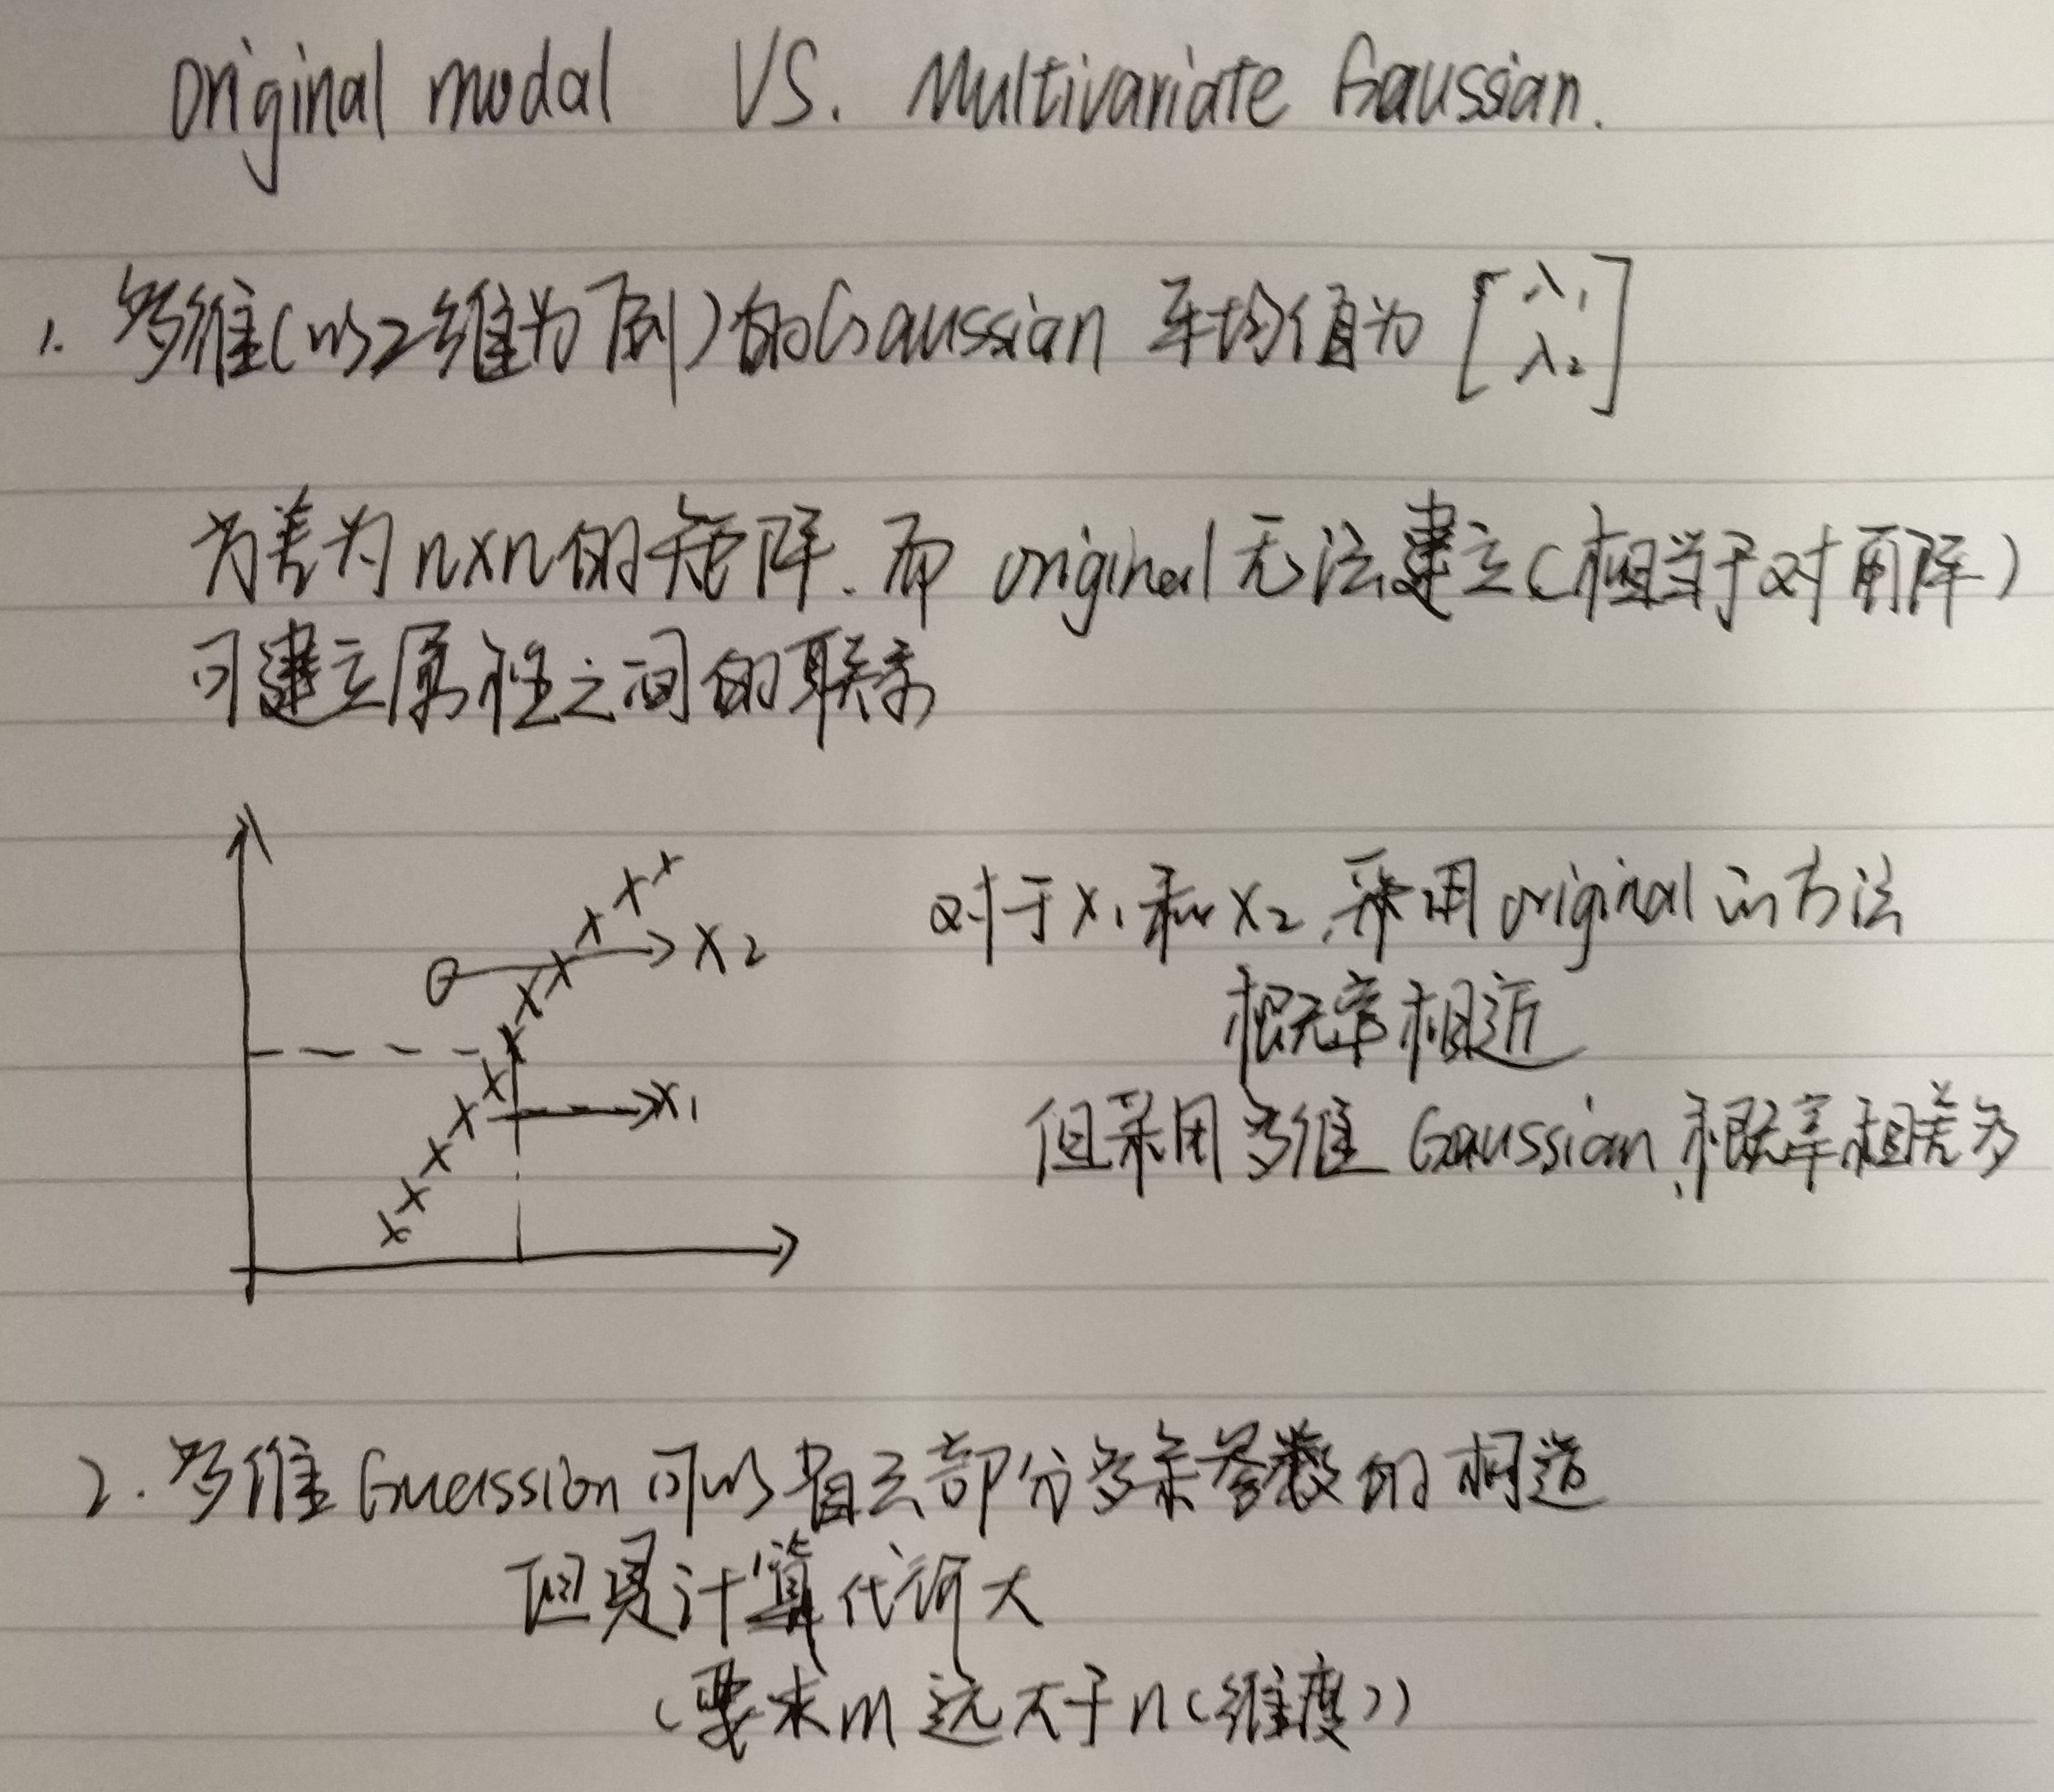 Original modal VS. Multivariate Gaussian.
1. 多维(以2维为例)的Gaussian 平均值为 [λ₁ λ₂]
方差为n×n的矩阵.而 original 无法建立(相当于对角阵)
可建立属性之间的联系
x₂
x₁
对于x₁和x₂,采用original的方法
概率相近
但采用多维 Gaussian,概率相差多
2.多维 Guassion可以省去部分多余参数的构造
但是计算代价大
(要求m远大于n(维度))